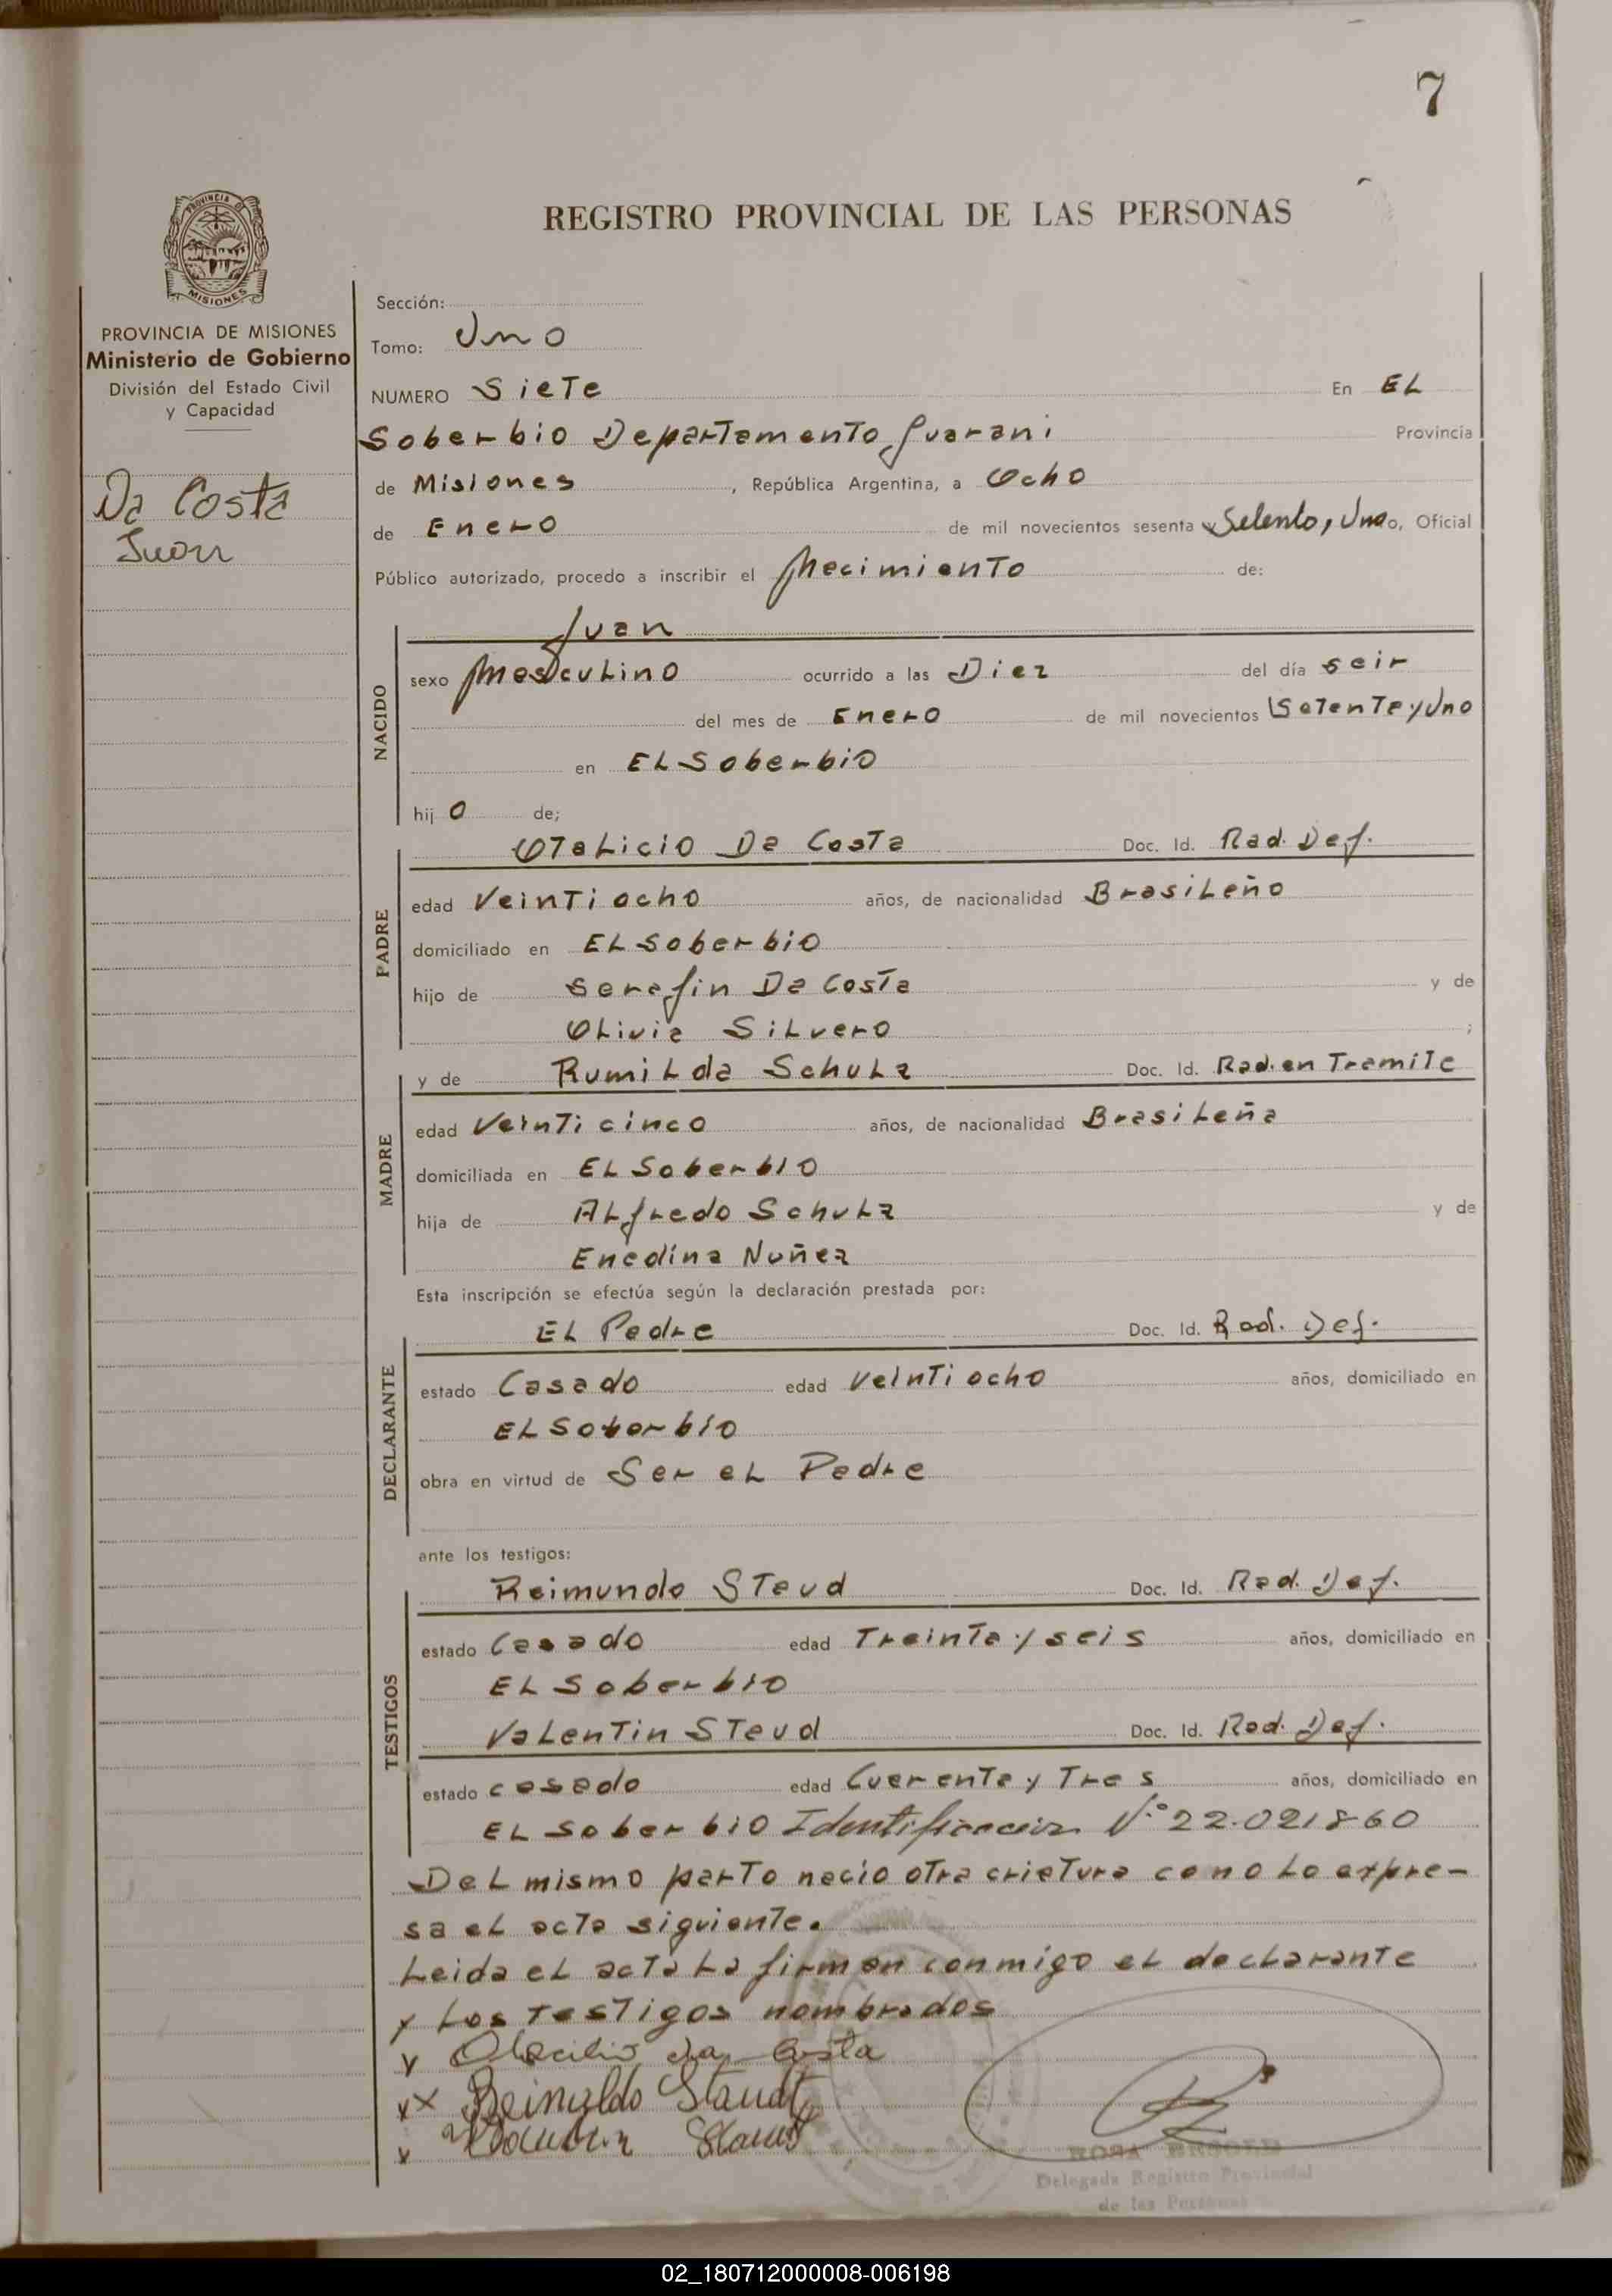 7
PROVINCIA DE
MISIONES
REGISTRO PROVINCIAL DE LAS PERSONAS
PROVINCIA DE MISIONES
Ministerio de Gobierno
División del Estado Civil
y Capacidad
Da Costa
Juan
Sección:
Tomo: Uno
NUMERO Siete En EL
Soberbio Departamento Guarani Provincia
de Misiones, República Argentina, a Ocho
de Enero de mil novecientos sesenta y Setenta, Uno, Oficial
Público autorizado, procedo a inscribir el Nacimiento de:
Juan
NACIDO
sexo Masculino ocurrido a las Diez del día seis
del mes de Enero de mil novecientos Setenta y Uno
en EL Soberbio
hijo de;
PADRE
Otalicio Da Costa Doc. Id. Rad. Def.
edad Veintiocho años, de nacionalidad Brasileño
domiciliado en EL Soberbio
hijo de Serafin Da Costa y de
Olivia Silvero ;
MADRE
y de Rumilda Schulz Doc. Id. Rad. en Tramite
edad Veinticinco años, de nacionalidad Brasileña
domiciliada en EL Soberbio
hija de Alfredo Schulz y de
Enedina Nuñez
Esta inscripción se efectúa según la declaración prestada por:
DECLARANTE
EL Padre Doc. Id. Rad. Def.
estado Casado edad Veintiocho años, domiciliado en
EL Soberbio
obra en virtud de Ser el Padre
ante los testigos:
TESTIGOS
Reimundo Steud Doc. Id. Rad. Def.
estado Casado edad Treinta y seis años, domiciliado en
EL Soberbio
Valentin Steud Doc. Id. Rad. Def.
estado casado edad Cuarenta y Tres años, domiciliado en
EL Soberbio Identificacion N° 22.021860
Del mismo parto nacio otra criatura como lo expre-
sa el acta siguiente.
Leida el acta la firman conmigo el declarante
y los testigos nombrados
da Costa
Reinaldo Staudt
ROSA
Delegada Registro Provincial
de las Personas
02_180712000008-006198